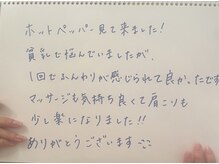 ホットペッパー見て来ました!
貧乳で悩んでいましたが、
1回でふんわりが感じられて良かったです
マッサージも気持ち良くて肩こりも
少し楽になりました!!
ありがとうございます